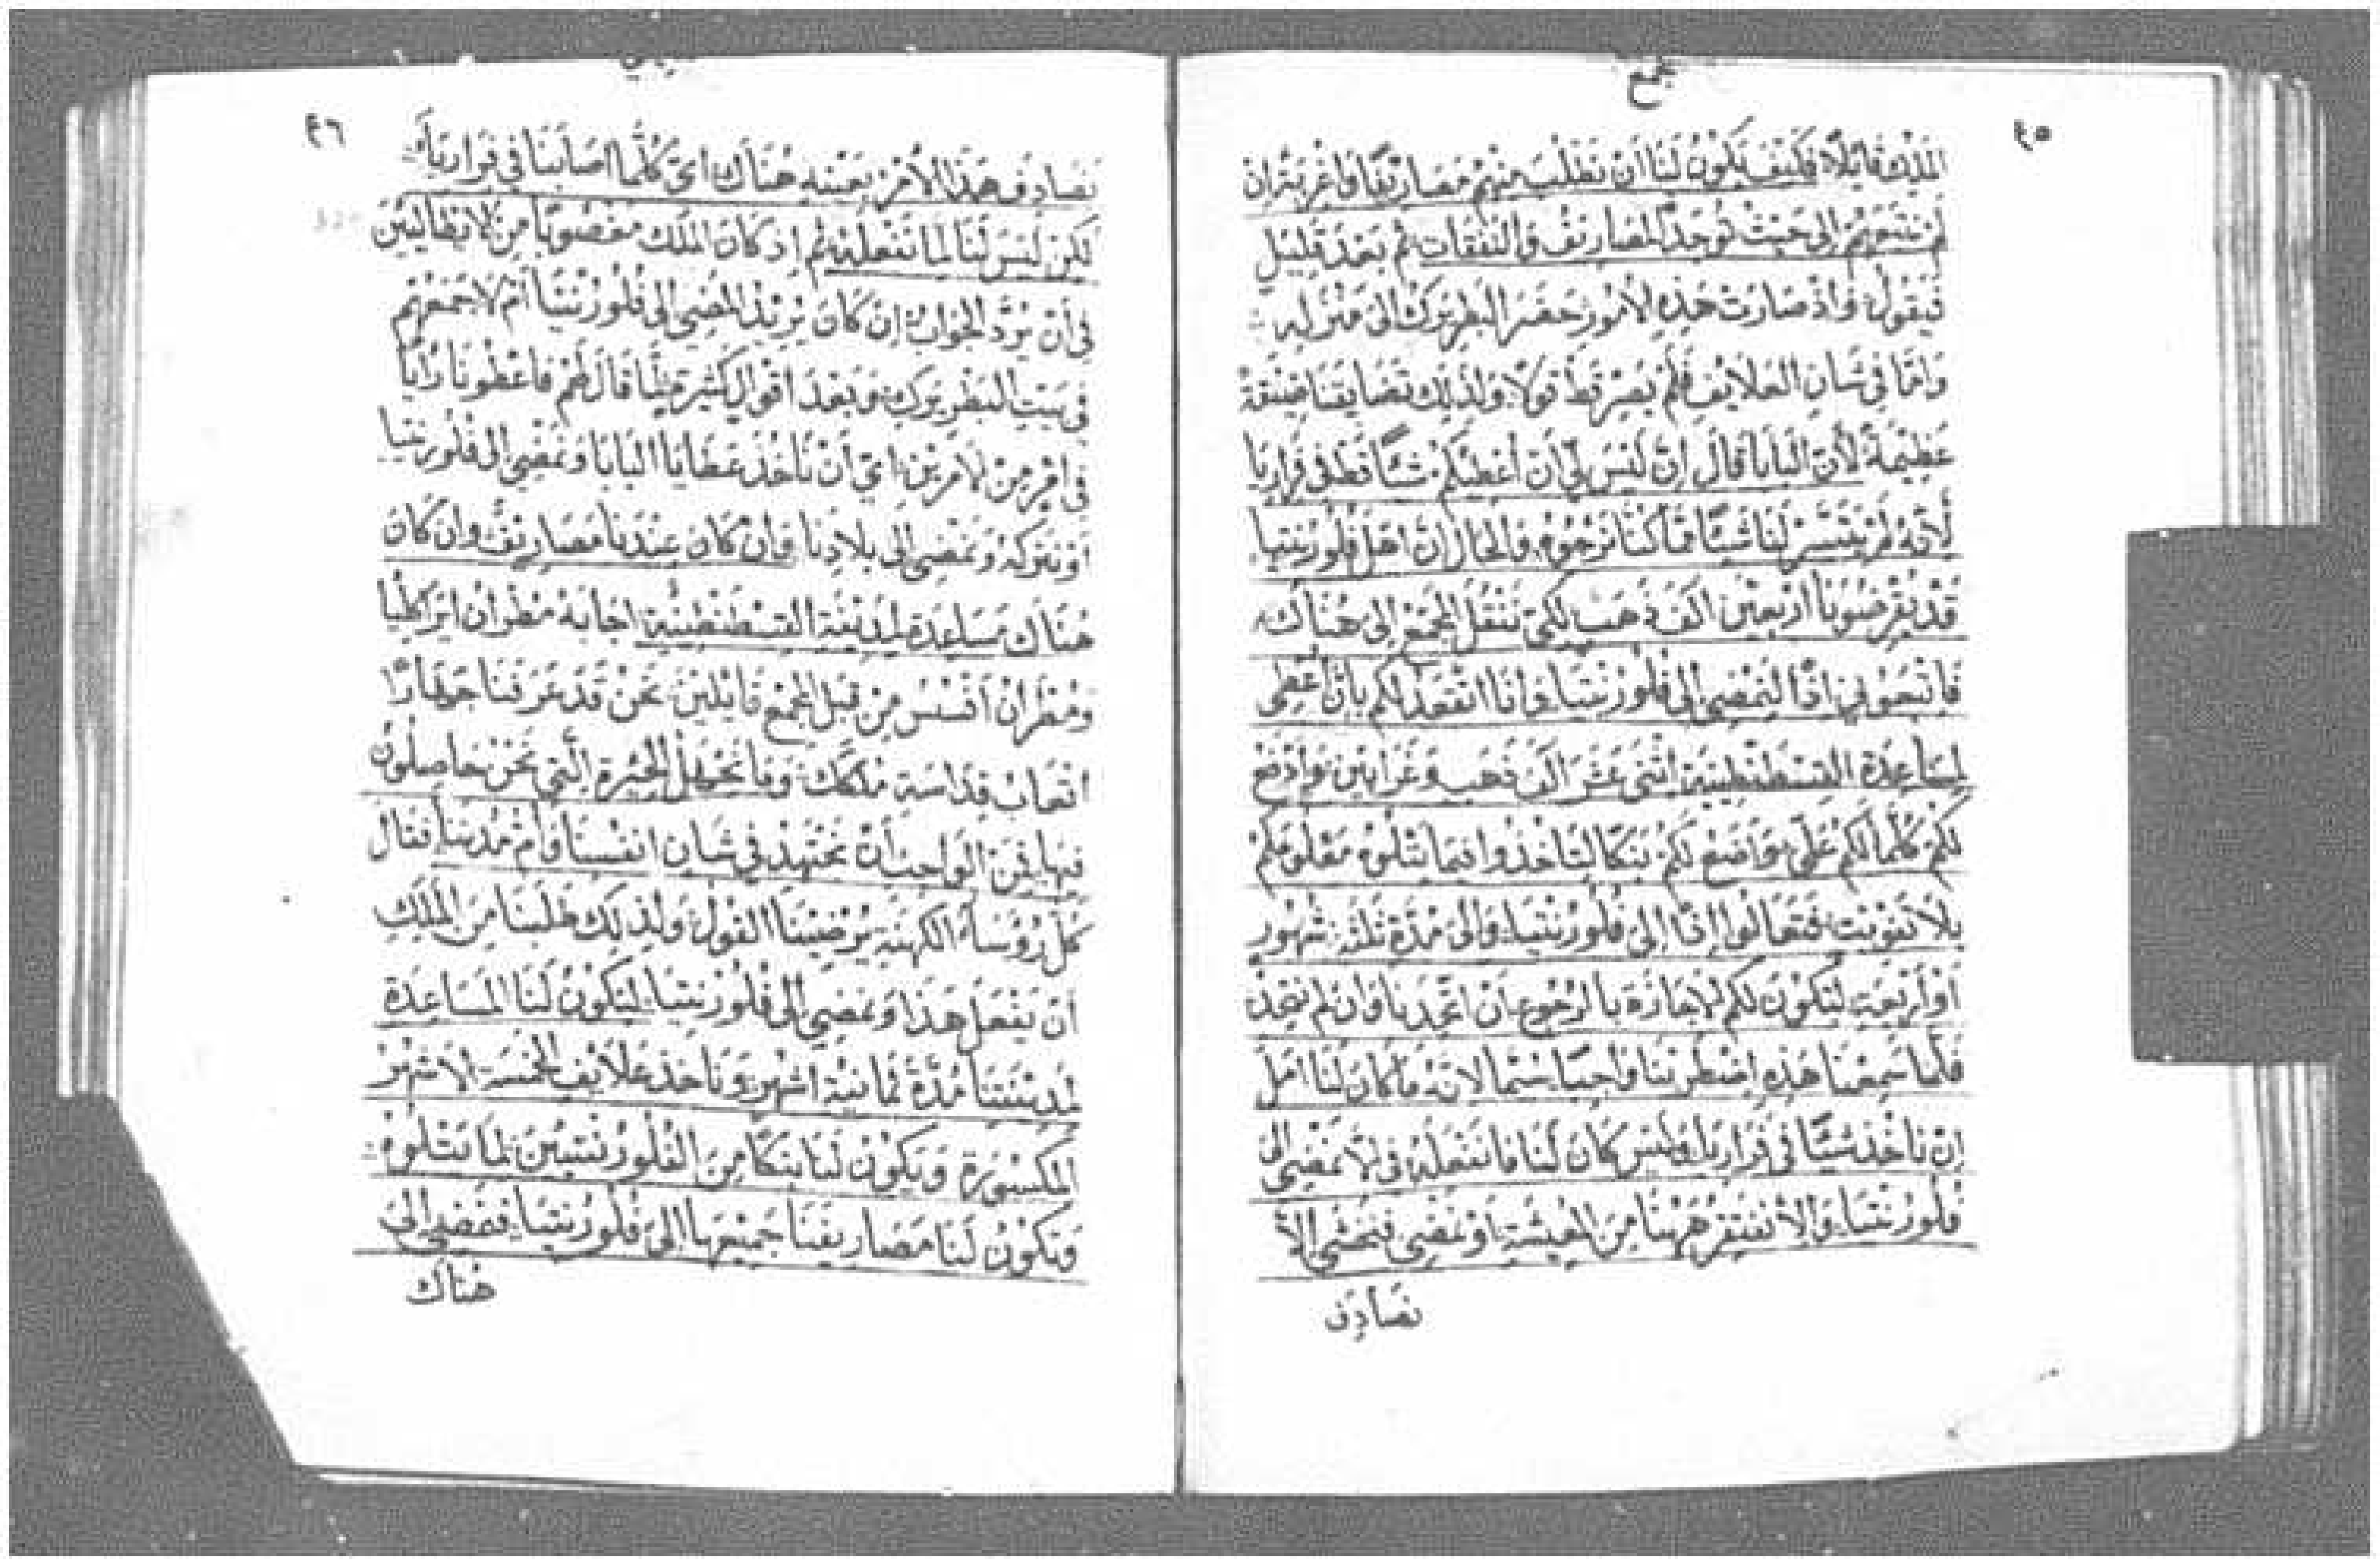 مجمع
٤٥
الملك قايلًا فكيف يكون لنا أن نطلب منهم مصاريفًا واغربتًا ان
لم نتبعهم إلى حيث توجد المصاريف والنفقات ثم بعد قليل
فيقول واذ صارت هذه الأمور حضر البطريرك الى منزله
وامّا في شان العلايف فلم يصر قط قولًا ولذلك تضايقنا ضيقةً
عظيمةً لأن البابا قال إن ليس لي أن أعطيكم شيًا قط في فراريا
لأنه لم يتيسّر لنا شيئًا ممّا كنّا نرجوه والحال ان اهل فلورنتيا
قد يقرضونا اربعين الف ذهب لكي ننقل المجمع إلى هناك
فاتبعوني اذًا لنمضي إلى فلورنتيا وانا اتعهد لكم بان أعطي
لمساعدة القسطنطينية اثني عشر الف ذهب وغرابين وادفع
لكم كلما لكم علي واضع لكم بنكًا لتاخذوا فيما يتلوه معلومكم
بلا تفويت فتعالوا اذًا إلى فلورنتيا والى مدّة ثلثة شهور
أو أربعة لتكون لكم الاجازة بالرجوع أن اتحدنا وان لم نتحد
فلما سمعنا هذه اضطربنا واجبًا سيما لانه ما كان لنا امل
ان ناخذ شيًا في فراريا وليس كان لنا ما نفعله في الّا نمضي الى
فلورنتيا والا نفتقر ههنا من المعيشة او نمضي فنخشى الّا
نصادف
٤٦
نصادف هذا الأمر بعينه هناك اي كلّما اصابنا في فراريا
لكن ليس لنا لما نفعله ثم اذ كان الملك مغصوبًا من الايطاليين
في أن يردّ الجواب إن كان يريد المضي إلى فلورنتيا أم لا جمعهم
في بيت البطريرك وبعد اقوال كثيرة مليًا قال لهم فاعطونا رأيًا
في امر من الامرين اي أن ناخذ عطايا البابا ونمضي الى فلورنتيا
او نتركه ونمضي الى بلادنا وان كان عندنا مصاريف وان كان
هناك مساعدة لمدينة القسطنطينية اجابه مطران ايراكليا
ومطران أفسس من قبل المجمع قايلين نحن قد عرفنا جهارًا
اتعاب قداسة ملكك وما نجهل الحيرة التي نحن حاصلون
فيها فمن الواجب أن نجتهد في شان انفسنا وأم مدننا فقال
كل رؤساء الكهنة يرضينا القول ولذلك طلبنا من الملك
أن يفعل هذا ونمضي إلى فلورنتيا لتكون لنا المساعدة
لمدينتنا مدّة ثمانية اشهر وناخذ علايف الخمسة الاشهر
المكسورة ويكون لنا بنكًا من الفلورنتيين لما يتلوه
وتكون لنا مصاريفنا جميعها الى فلورنتيا فنمضي الى
هناك